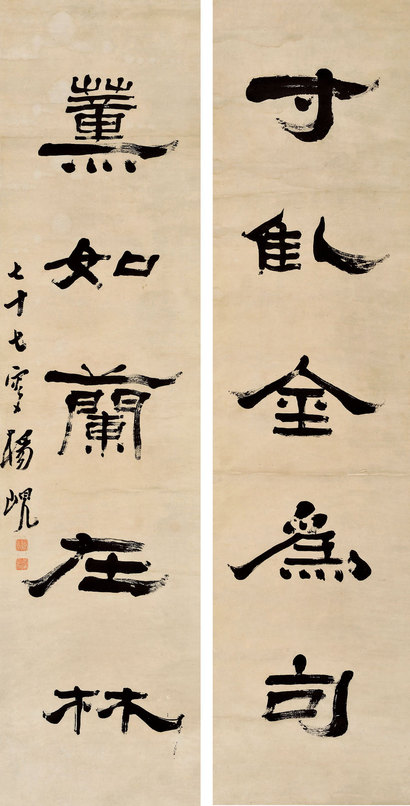 寸金爲句
薰如蘭在林
七十七叟楊峴